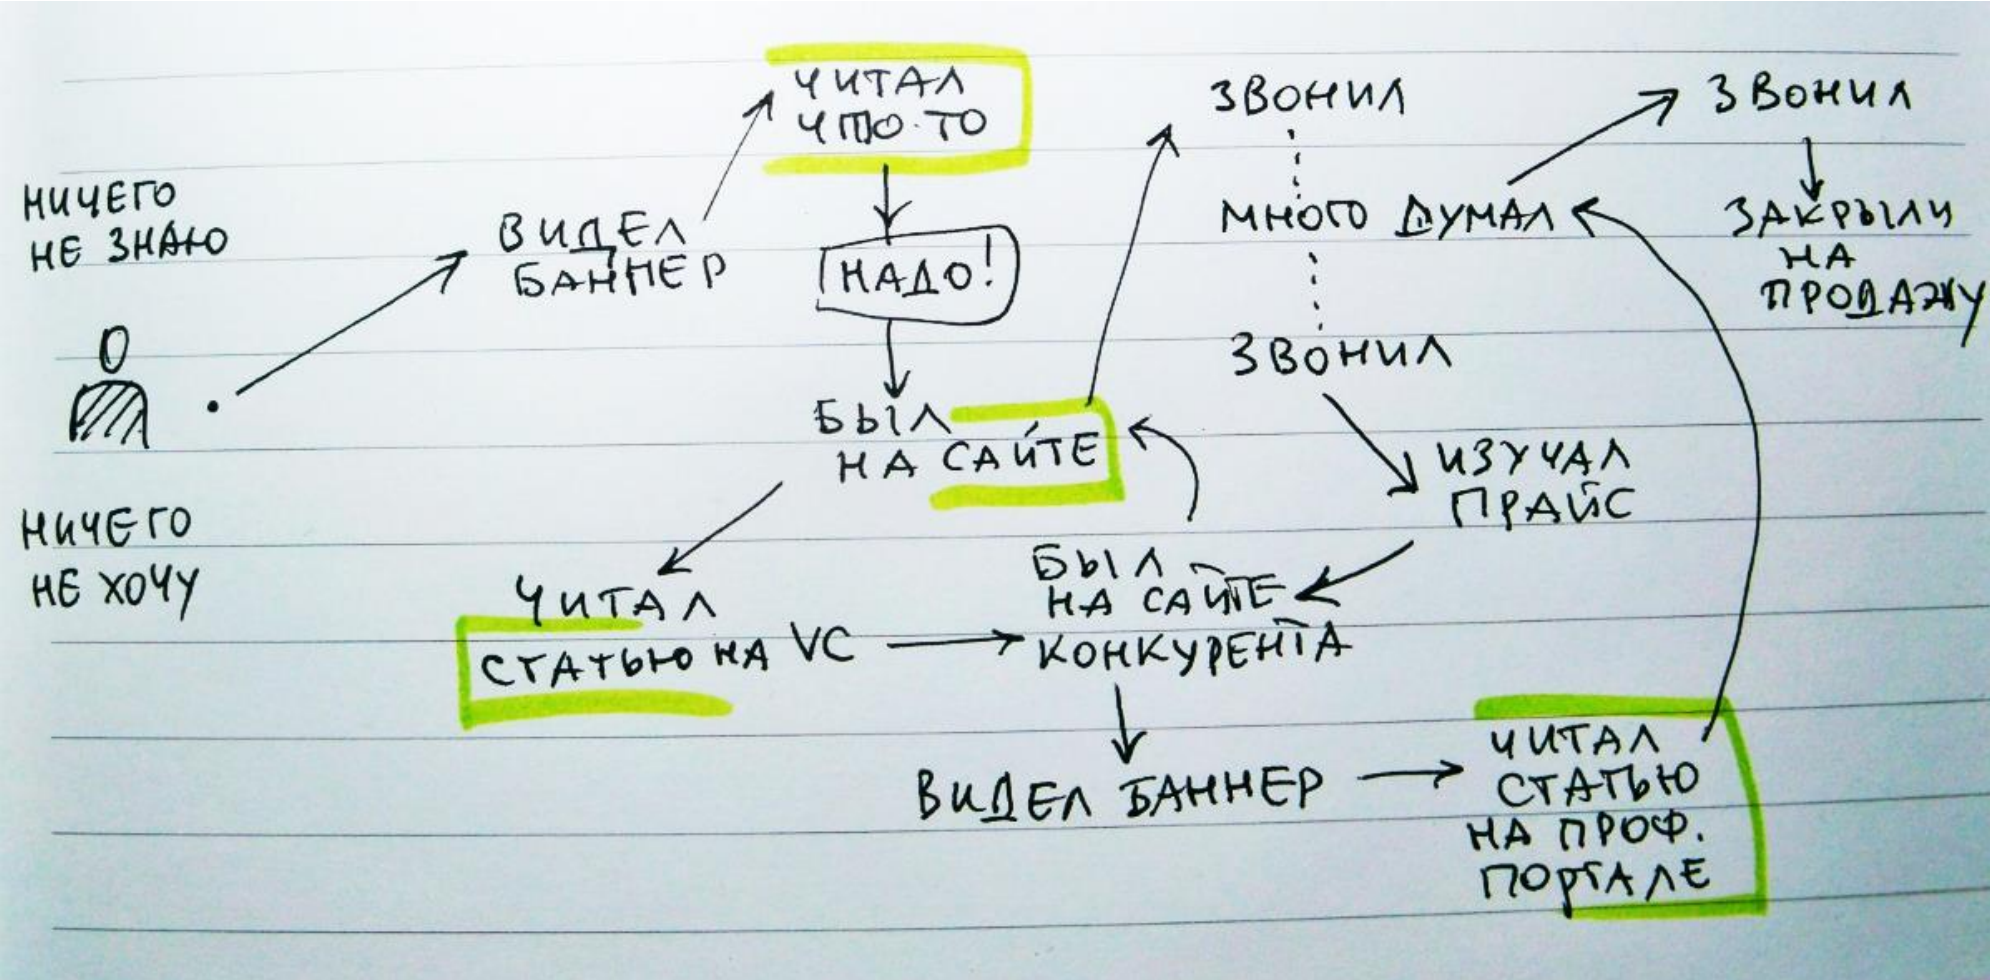 НИЧЕГО
НЕ ЗНАЮ
НИЧЕГО
НЕ ХОЧУ
ВИДЕЛ
БАННЕР
ЧИТАЛ
ЧТО-ТО
НАДО!
БЫЛ
НА САЙТЕ
ЧИТАЛ
СТАТЬЮ НА VC
БЫЛ
НА САЙТЕ
КОНКУРЕНТА
ВИДЕЛ БАННЕР
ЧИТАЛ
СТАТЬЮ
НА ПРОФ.
ПОРТАЛЕ
ЗВОНИЛ
МНОГО ДУМАЛ
ЗВОНИЛ
ИЗУЧАЛ
ПРАЙС
ЗВОНИЛ
ЗАКРЫЛИ
НА
ПРОДАЖУ